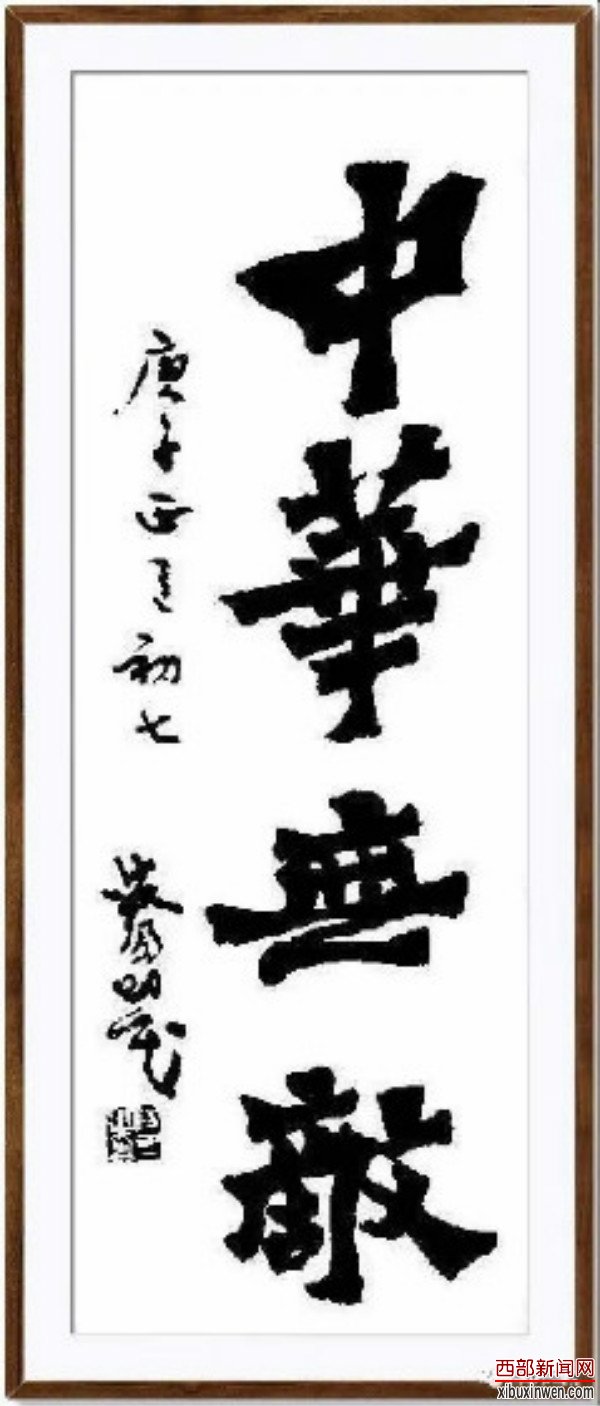 中華無敵
庚子正月初七
西部新闻网
xibuxinwen.com